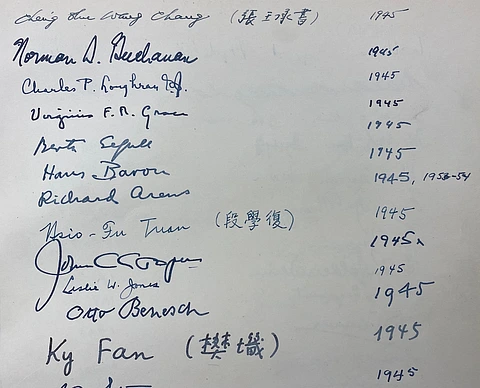 Chêng Shu Wang Chang (張王承書) 1945
Norman D. Buchanan 1945
Charles P. Loughran S.J. 1945
Virginia F. R. Grace 1945
Berta Segall 1945
Hans Baron 1945, 1953-54
Richard Arens
Hsio-Fu Tuan (段學復) 1945
John C. Cooper 1945
Leslie W. Jones 1945
Otto Benesch 1945
Ky Fan (樊𰋀) 1945
1945